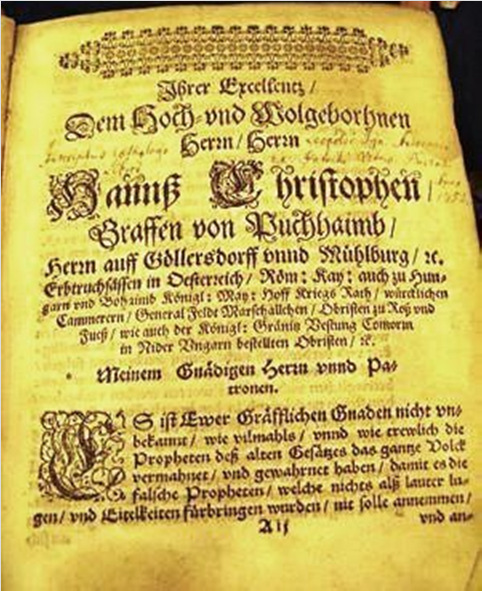 Ihrer Excellentz /
Dem Hoch- vnd Wolgebohrnen
Herrn / Herrn
Hannß Christophen /
Graffen von Puchhaimb /
Herrn auff Göllersdorff vnnd Mühlburg / ꝛc.
Erbtruchsässen in Oesterreich / Röm: Kay: auch zu Hun-
garn vnd Bohaimb Königl: May: Hoff Kriegs Rath / würcklichen
Cammerern / General Feldt Marschallchen / Obristen zu Roß vnd
Fueß / wie auch der Königl: Gränitz Vestung Comorn
in Nider Vngarn bestellten Obristen / ꝛc.
Meinem Gnädigen Herrn vnnd Pa-
tronen.
ES ist Ewer Gräfflichen Gnaden nicht vn-
bekannt / wie vilmahls / vnnd wie trewlich die
Propheten deß alten Gesätzes das gantze Volck
vermahnet / vnd gewahrnet haben / damit es die
falsche Propheten / welche nichts alß lauter Lu-
gen / vnd Eitelkeiten fürbringen wurden / nit solle annemmen /
A ij vnd an-